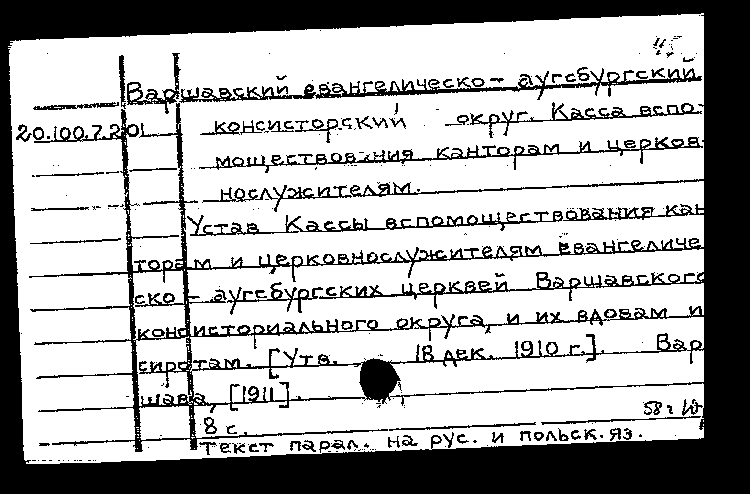 45
Варшавский евангелическо- аугсбургский
20.100.7.201 консисторский округ. Касса вспо-
моществования канторам и церков-
нослужителям.
Устав Кассы вспомоществования кан
торам и церковнослужителям евангеличе
ско-аугсбургских церквей Варшавского
консисториального округа, и их вдовам и
сиротам. [Утв. 18 дек. 1910 г.]. Вар
шава, [1911].
8 с.
Текст парал. на рус. и польск. яз.